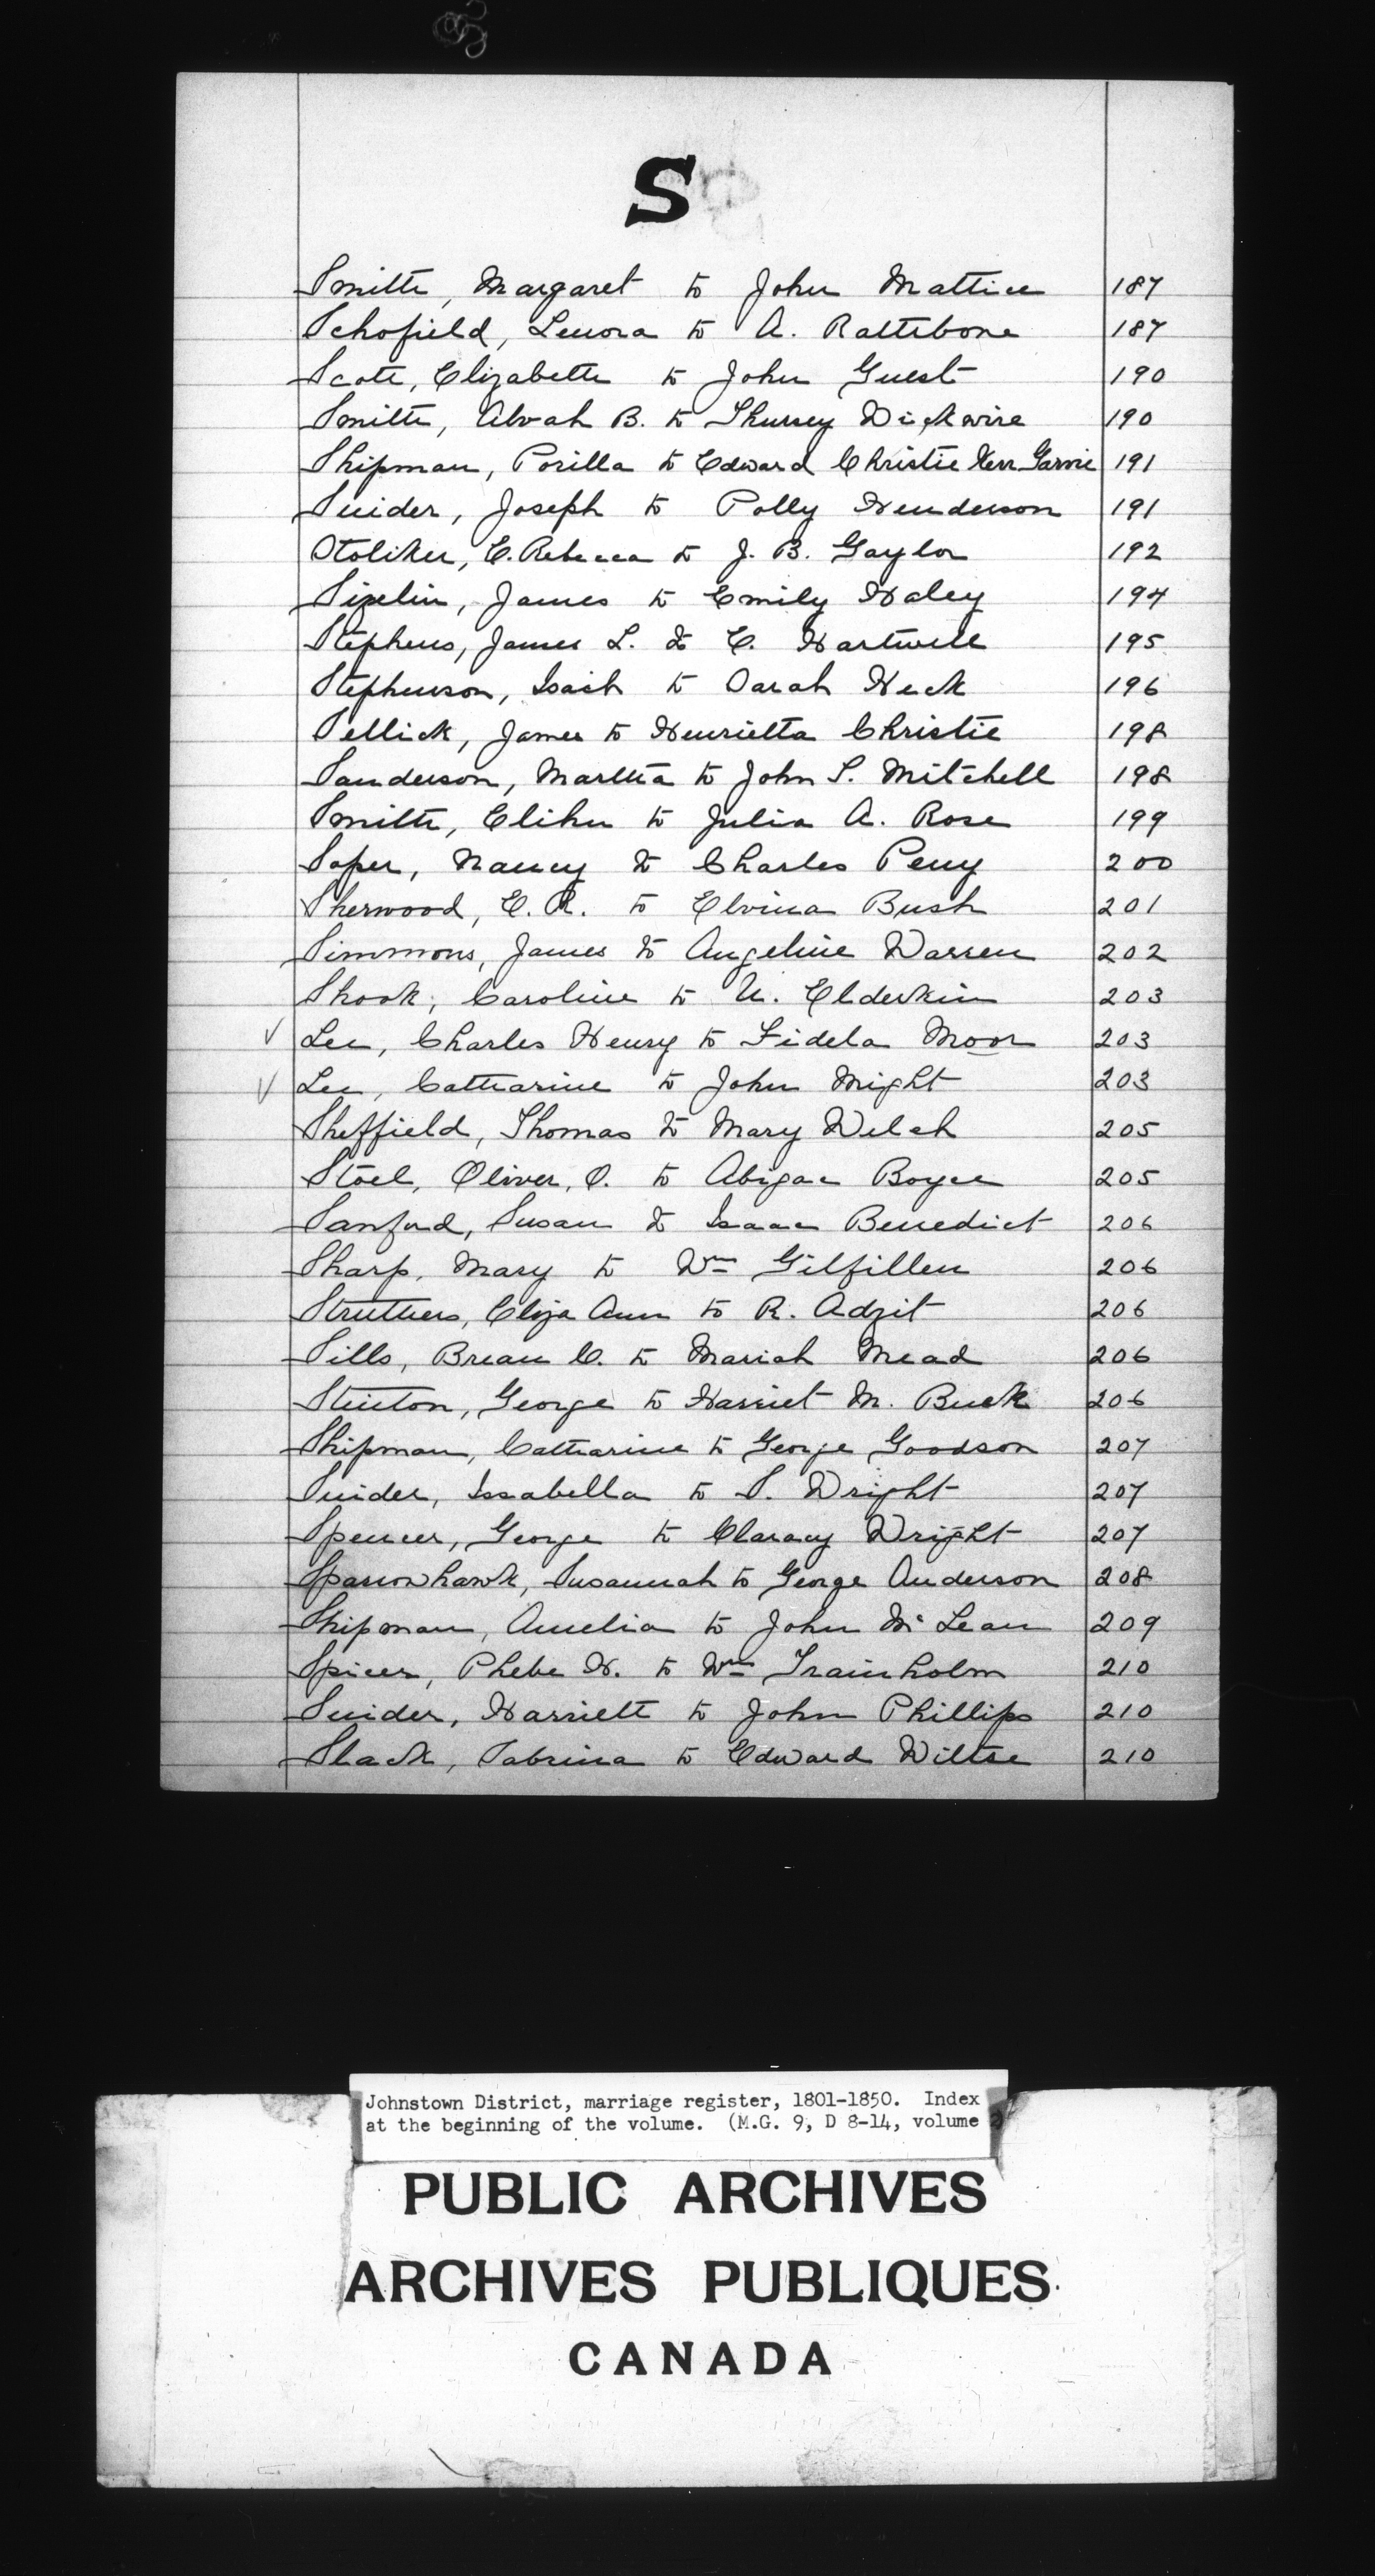 S
Smith, Margaret to John Mattice 187
Schofield, Lenora to A. Rathbone 187
Scott, Elizabeth to John Guest 190
Smith, Alvah B. to Thursey Dickwire 190
Shipman, Porilla to Edward Christie Kerr Garvie 191
Snider, Joseph to Polly Henderson 191
Stoliker, E. Rebecca to J. B. Gaylor 192
Sizelin, James to Emily Haley 194
Stephens, James L. to E. Hartwell 195
Stephenson, Isaih to Sarah Heck 196
Sellick, James to Henrietta Christie 198
Sanderson, Martha to John S. Mitchell 198
Smith, Elihu to Julia A. Rose 199
Soper, Nancy to Charles Perry 200
Sherwood, E. R. to Elvina Bush 201
Simmons, James to Angeline Warren 202
Shook, Caroline to U. Elderkin 203
√ Lee, Charles Henry to Fidela Moor 203
√ Lee, Catharine to John Might 203
Sheffield, Thomas to Mary Welch 205
Stoel, Oliver, O. to Abigae Boyce 205
Sanford, Susan to Isaac Benedict 206
Sharp, Mary to Wm Gilfillen 206
Struthers, Eliza Ann to R. Adzit 206
Sills, Brean C. to Mariah Mead 206
Stinton, George to Harriet M. Buck 206
Shipman, Catharine to George Goodson 207
Snider, Issabella to S. Wright 207
Spencer, George to Claracy Wright 207
Sparrowhawk, Susannah to George Anderson 208
Shipman, Amelia to John Mc Lean 209
Spicer, Phebe H. to Wm Trainholm 210
Snider, Harriett to John Phillips 210
Slack, Sabrina to Edward Wiltse 210
Johnstown District, marriage register, 1801-1850. Index
at the beginning of the volume. (M.G. 9, D 8-14, volume
PUBLIC ARCHIVES
ARCHIVES PUBLIQUES
CANADA